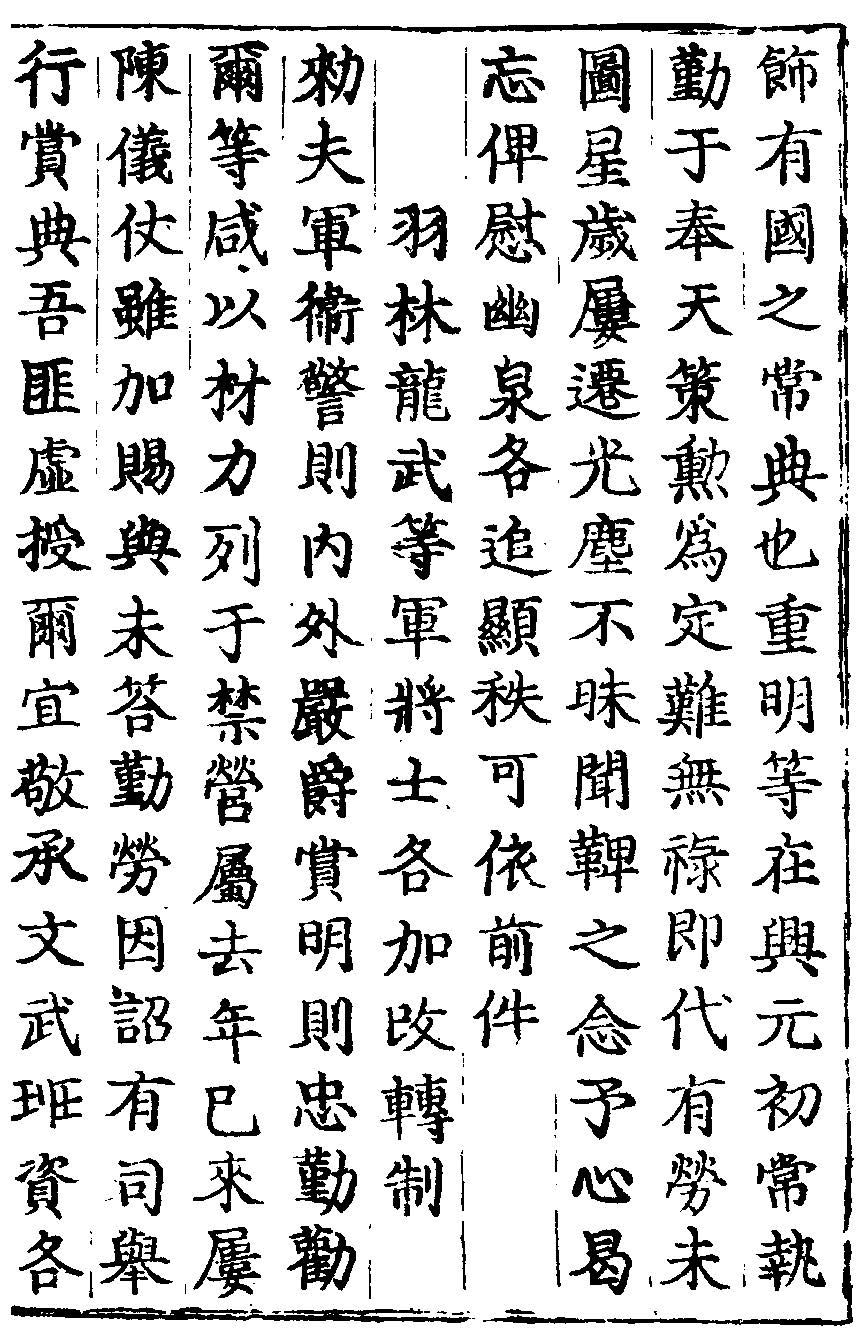 飾有國之常典也重明等在興元初常執
勤于奉天策勲爲定難無祿即代有勞未
圖星歲屢遷光塵不昧聞鞞之念予心曷
忘俾慰幽泉各追顯秩可依前件
羽林龍武等軍將士各加改轉制
勑夫軍衞警則内外嚴爵賞明則忠勤勸
爾等咸以材力列于禁營屬去年已來屢
陳儀仗雖加賜與未答勤勞因詔有司舉
行賞典吾匪虛授爾宜敬承文武班資各